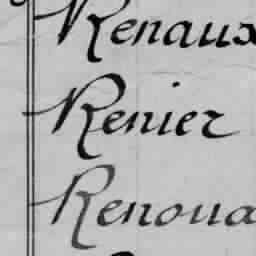 Renaux
Renier
Renoua